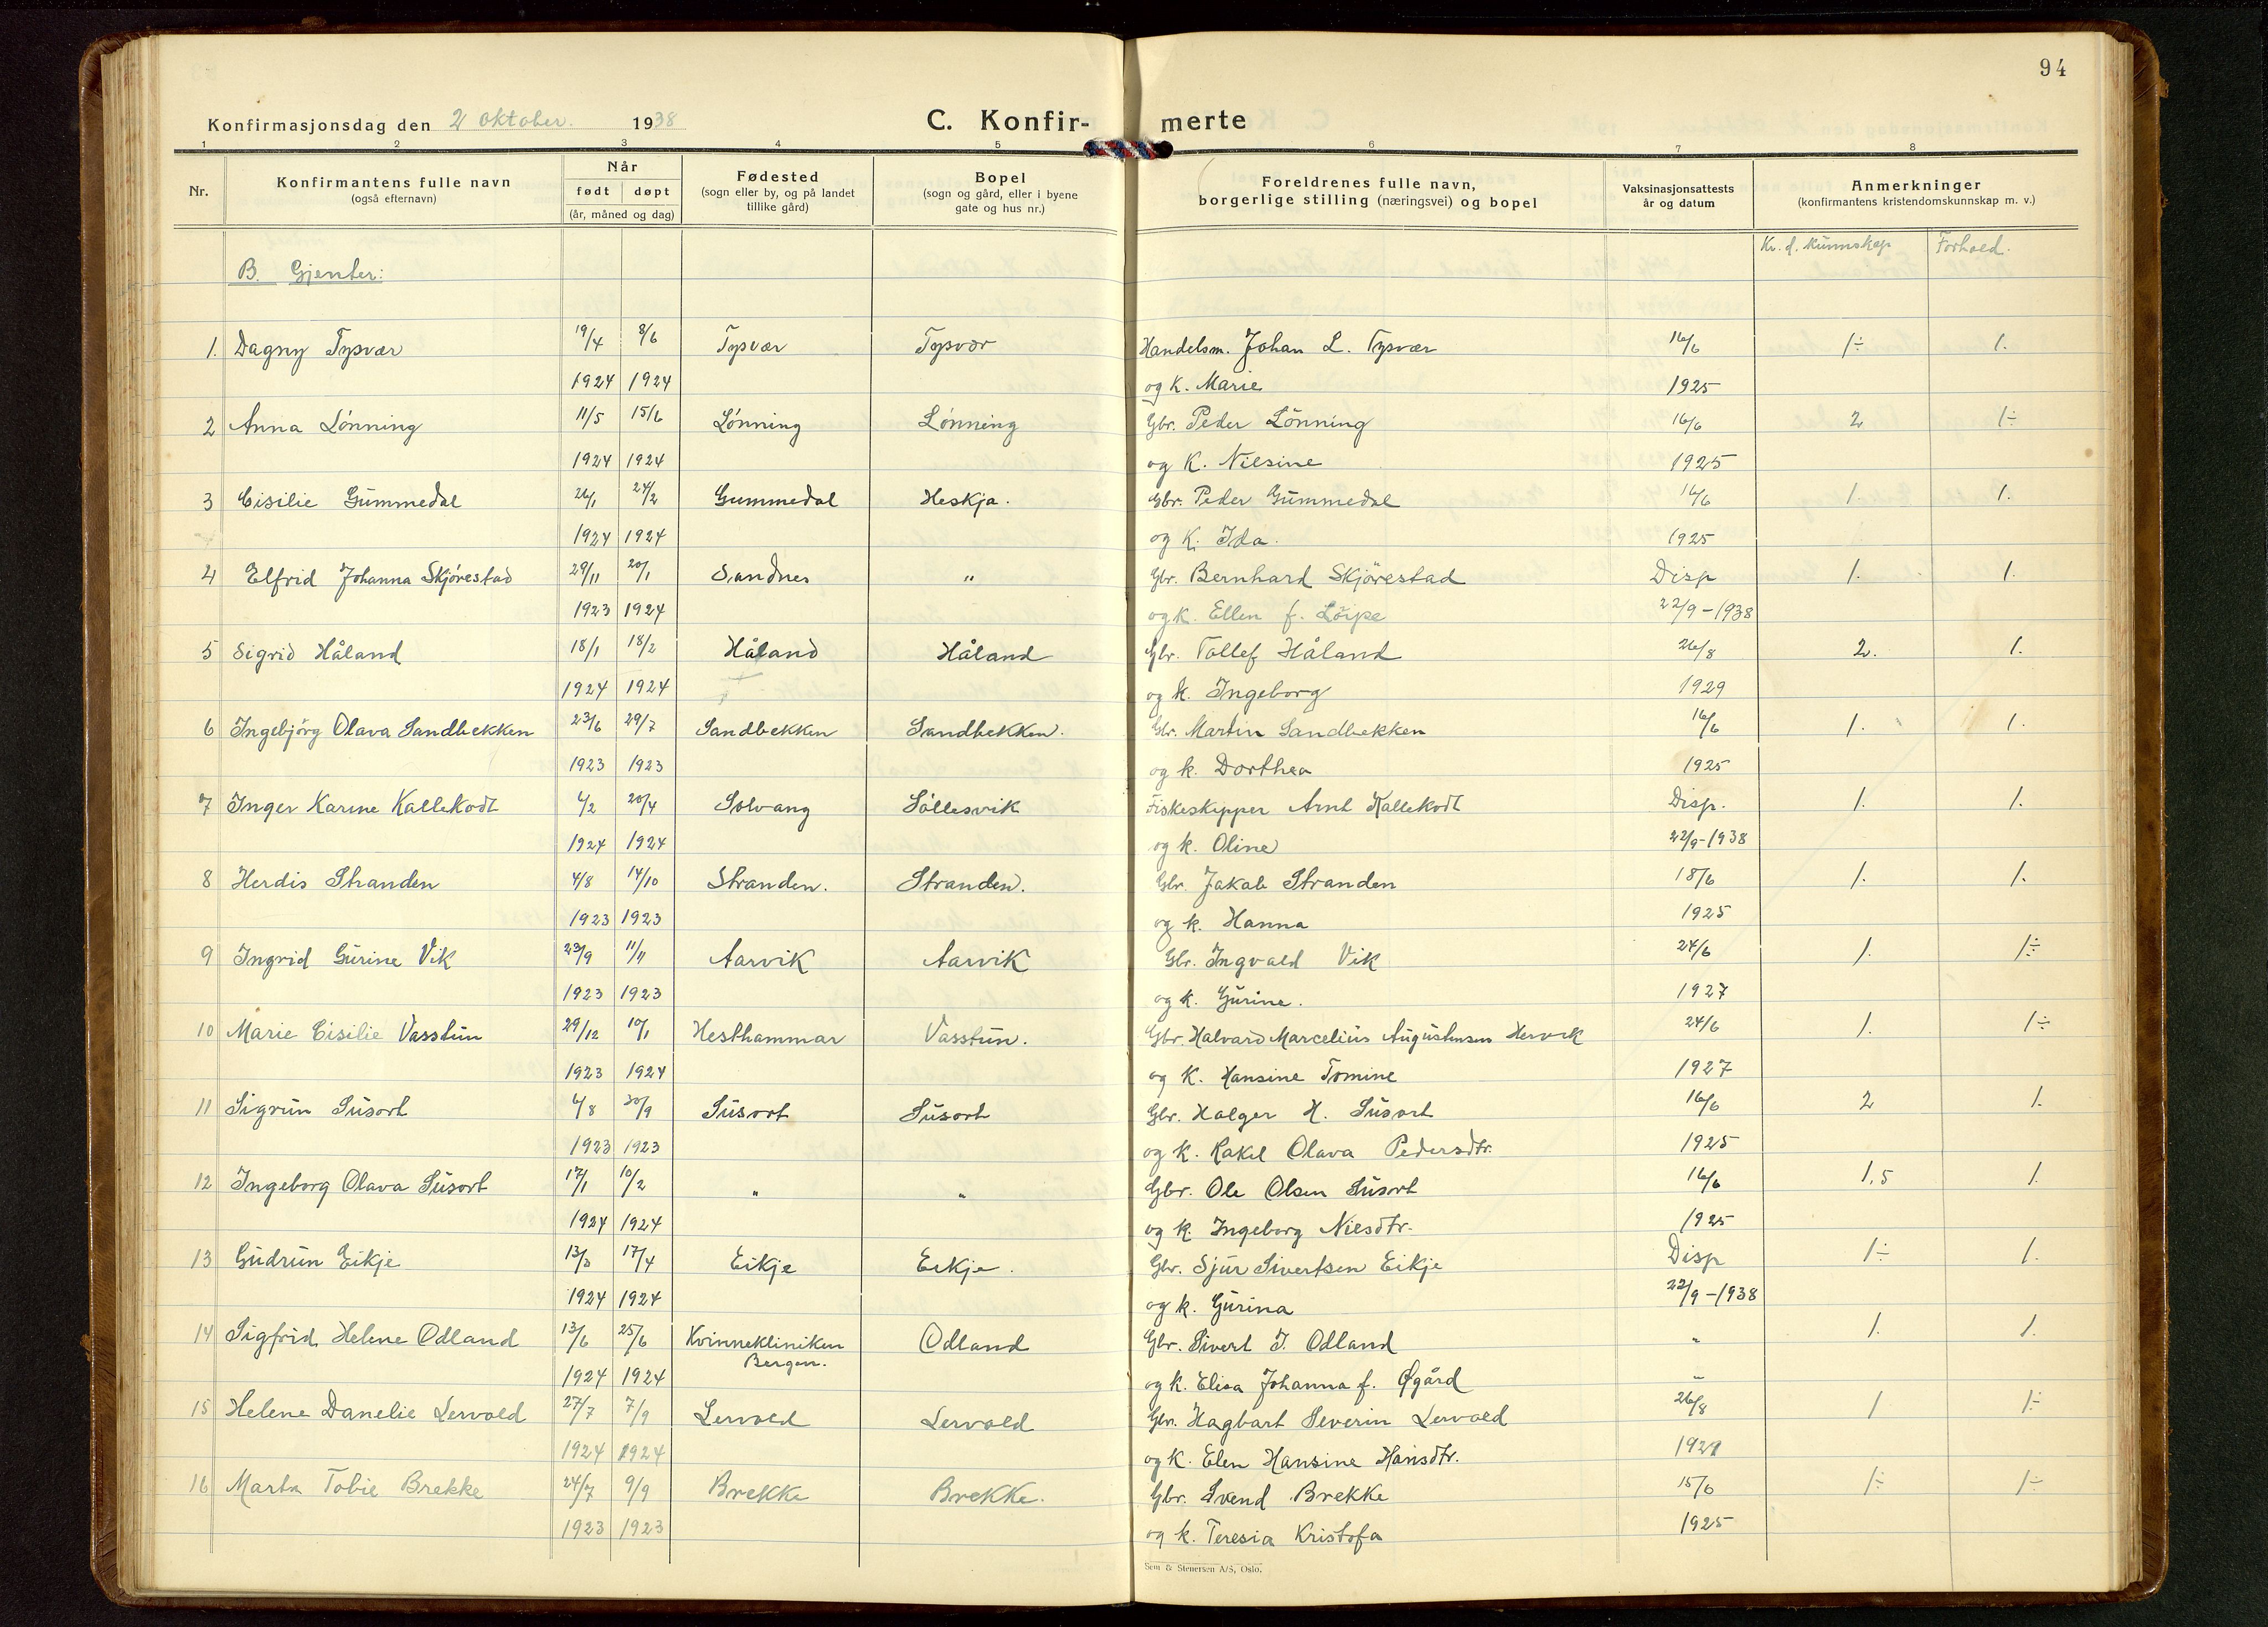 94
Konfirmasjonsdag den 2 oktober. 1938
C. Konfirmerte
1 2 3 4 5 6 7 8
Nr.
Konfirmantens fulle navn
(også efternavn)
Når
født døpt
(år, måned og dag)
Fødested
(sogn eller by, og på landet
tillike gård)
Bopel
(sogn og gård, eller i byene
gate og hus nr.)
Foreldrenes fulle navn,
borgerlige stilling (næringsvei) og bopel
Vaksinasjonsattests
år og datum
Anmerkninger
(konfirmantens kristendomskunnskap m. v.)
Kr. d. kunnskap Forhold.
B. Gjenter:
1. Dagny Tysvær 19/4 8/6 Tysvær Tysvær Handelsm. Johan L. Tysvær 16/6 1÷ 1.
1924 1924 og k. Marie 1925
2 Anna Lönning 11/5 15/6 Lönning Lönning Gbr. Peder Lönning 16/6 2 1÷
1924 1924 og K. Nilsine 1925
3 Cisilie Gummedal 26/1 24/2 Gummedal Heskja. Gbr. Peder Gummedal 16/6 1. 1.
1924 1924 og K. Ida. 1925
4 Elfrid Johanna Skjörestad 29/11 20/1 Sandnes " Gbr. Bernhard Skjörestad Disp 1. 1.
1923 1924 og k. Ellen f. Löipe 22/9-1938
5 Sigrid Håland 18/1 18/2 Håland Håland Gbr. Tollef Håland 26/8 2. 1.
1924 1924 og k. Ingeborg 1929
6 Ingebjörg Olava Sandbekken 23/6 29/7 Sandbekken Sandbekken. Gbr. Martin Sandbekken 16/6 1. 1.
1923 1923 og k. Dorthea 1925
7 Inger Karine Kallekodt 6/2 20/4 Solvang Söllesvik Fiskeskipper Arnt Kallekodt Disp. 1. 1.
1924 1924 og k. Oline 22/9-1938
8 Herdis Stranden 4/8 14/10 Stranden. Stranden. Gbr. Jakob Stranden 18/6 1. 1.
1923 1923 og k. Hanna 1925
9 Ingrid Gurine Vik 23/9 11/11 Aarvik Aarvik Gbr. Ingvald Vik 24/6 1. 1÷
1923 1923 og k. Gurine. 1927
10 Marie Cisilie Vasstun 29/12 10/1 Hesthammar Vasstun. Gbr. Halvard Marcelius Augustensen Hervik 24/6 1. 1÷
1923 1924 og K. Hansine Tomine 1927
11 Sigrun Susort 6/8 30/9 Susort Susort Gbr. Holger H. Susort 16/6 2 1.
1923 1923 og k. Rakel Olava Pedersdtr. 1925
12 Ingeborg Olava Susort 17/1 10/2 " " Gbr. Ole Olsen Susort 16/6 1,5 1.
1924 1924 og k. Ingeborg Nilsdtr. 1925
13 Gudrun Eikje 13/3 17/4 Eikje Eikje. Gbr. Sjur Sivertsen Eikje Disp 1÷ 1.
1924 1924 og k. Gurina 22/9-1938
14 Sigfrid Helene Odland 13/6 25/6 Kvinnekliniken Odland Gbr. Sivert J. Odland " 1. 1.
Bergen.
1924 1924 og k. Elisa Johanna f. Øgård
15 Helene Danelie Lervold 27/7 7/9 Lervold Lervold Gbr. Hagbart Severin Lervold 26/8 1 1÷
1924 1924 og k. Elen Hansine Hansdtr. 1929
16 Marta Tobie Brekke 24/7 9/9 Brekke Brekke. Gbr. Svend Brekke 15/6 1÷ 1÷
1923 1923 og k. Teresia Kristofa 1925
Sem & Stenersen A/S, Oslo.